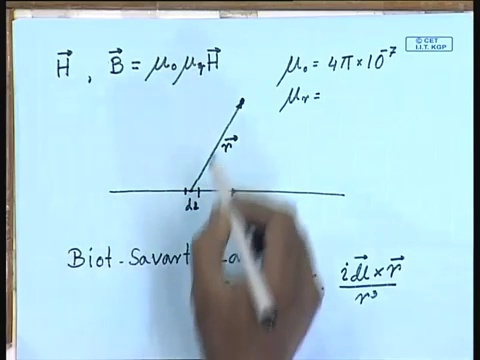 © CET
I.I.T. KGP
H⃗ , B⃗ = μ₀ μᵣ H⃗
μ₀ = 4π × 10⁻⁷
μᵣ =
r⃗
dl
Biot - Savart
i dl⃗ × r⃗
r³